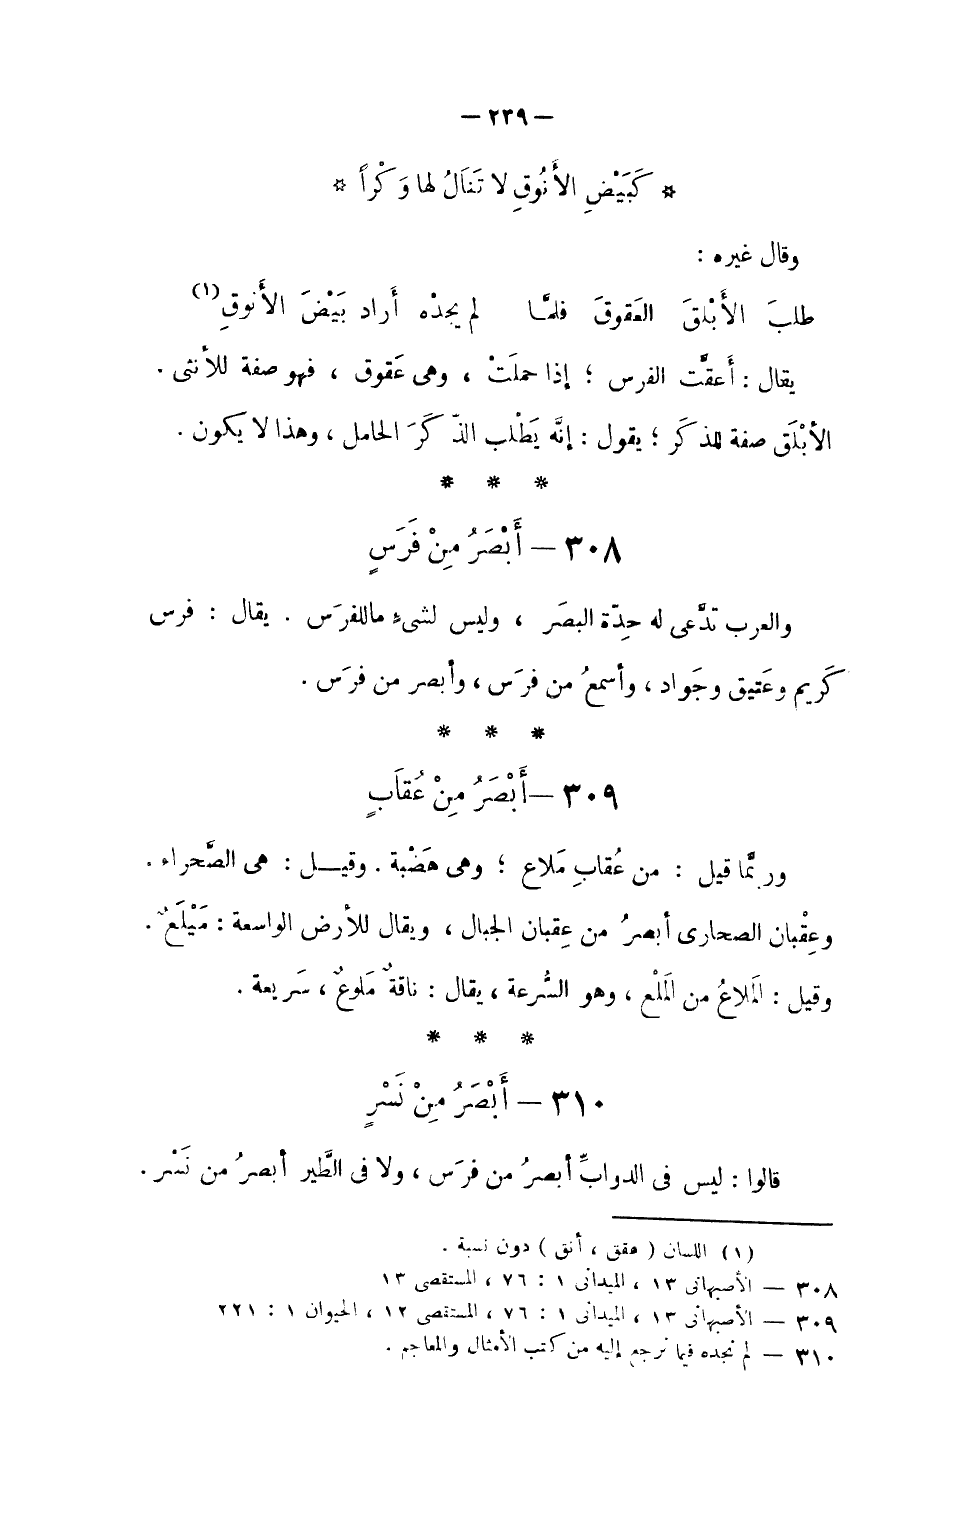 — ٢٣٩ —
* كَبَيْضِ الأَنُوقِ لا تَنَالُ لها وَكْراً *
وقال غيره :
طلبَ الأَبْلقَ العَقوقَ فلمَّا لم يجدْه أراد بَيْضَ الأَنوقِ(١)
يقال : أَعقَّت الفرس ؛ إذا حملَتْ ، وهى عَقوق ، فهو صفة للأنثى .
الأبْلَق صفة للذكَر ؛ يقول : إنَّه يَطْلب الذّكَرَ الحامل ، وهذا لا يكون .
* * *
٣٠٨ — أَبْصَرُ مِنْ فَرَسٍ
والعرب تدَّعى له حِدّة البصَر ، وليس لشىءٍ ماللفرَس . يقال : فرس
كَريم وعَتيق وجَواد ، وأسمعُ من فرَس ، وأبصر من فرَس .
* * *
٣٠٩ — أَبْصَرُ مِنْ عُقَابٍ
وربَّما قيل : من عُقابِ مَلاع ؛ وهى هَضْبة . وقيــل : هى الصَّحراء .
وعِقْبان الصحارى أبصرُ من عِقبان الجبال ، ويقال للأرض الواسعة : مَيْلَعٌ .
وقيل : المَلاعُ من المَلْع ، وهو السُّرعة ، يقال : ناقةٌ مَلوعٌ ، سَريعة .
* * *
٣١٠ — أَبْصَرُ مِنْ نَسْرٍ
قالوا : ليس فى الدوابِّ أبصرُ من فرَس ، ولا فى الطَّير أبصرُ من نَسْر .
(١) اللسان ( عقق ، أنق ) دون نسبة .
٣٠٨ — الأصبهانى ١٣ ، الميدانى ١ : ٧٦ ، المستقصى ١٣
٣٠٩ — الأصبهانى ١٣ ، الميدانى ١ : ٧٦ ، المستقصى ١٢ ، الحيوان ١ : ٢٢١
٣١٠ — لم نجده فيما نرجع إليه من كتب الأمثال والمعاجم .